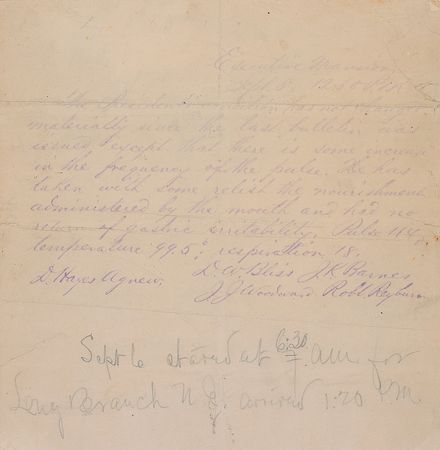 Executive Mansion
Sept. 5. 12.30 P.M.
The President's condition has not changed
materially since the last bulletin was
issued, except that there is some increase
in the frequency of the pulse. He has
taken with some relish the nourishment
administered by the mouth and had no
return of gastric irritability. Pulse 114,
temperature 99.5°, respiration 18.
D. W. Bliss J. K. Barnes
D. Hayes Agnew. J. J. Woodward Robt. Reyburn
Sept 6 started at 6:30 a.m. for
Long Branch N.J. arrived 1:20 P.M.